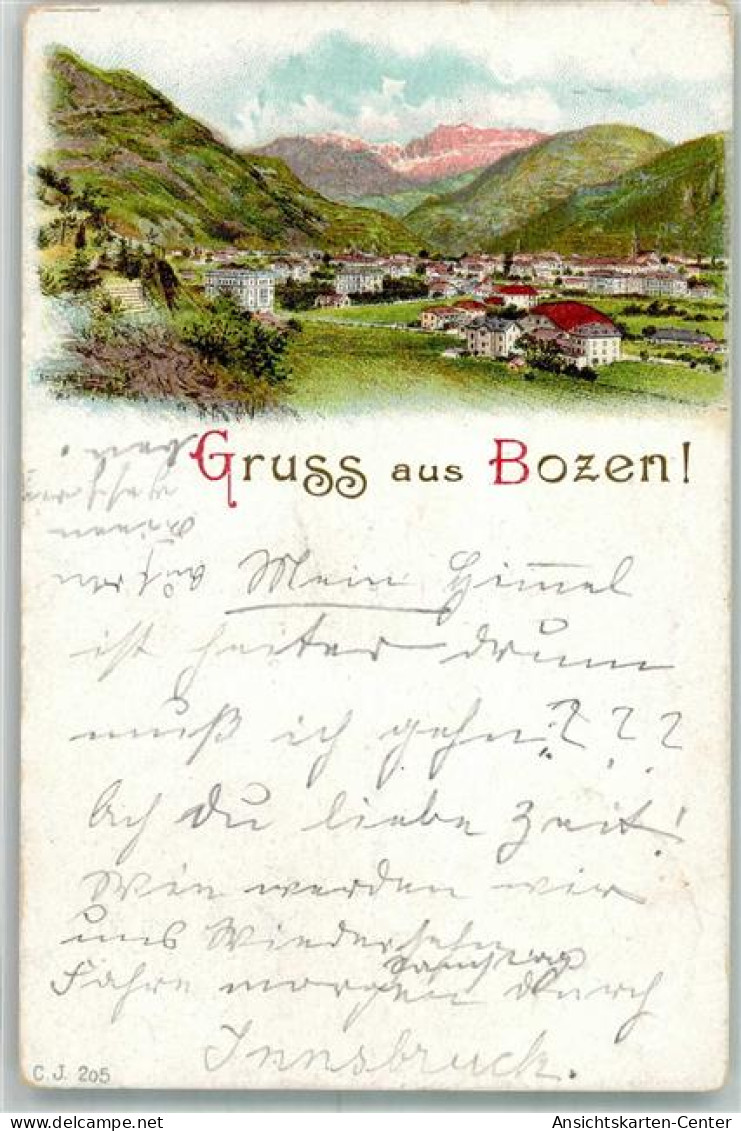 Gruss aus Bozen!
Mein Himmel
ist heiter drum
muß ich gehn? ? ?
Ach du liebe Zeit!
Wen werden wir
uns Wiedersehn
Samstag
Fahre morgen durch
Innsbruck.
C. J. 205
Ansichtskarten-Center